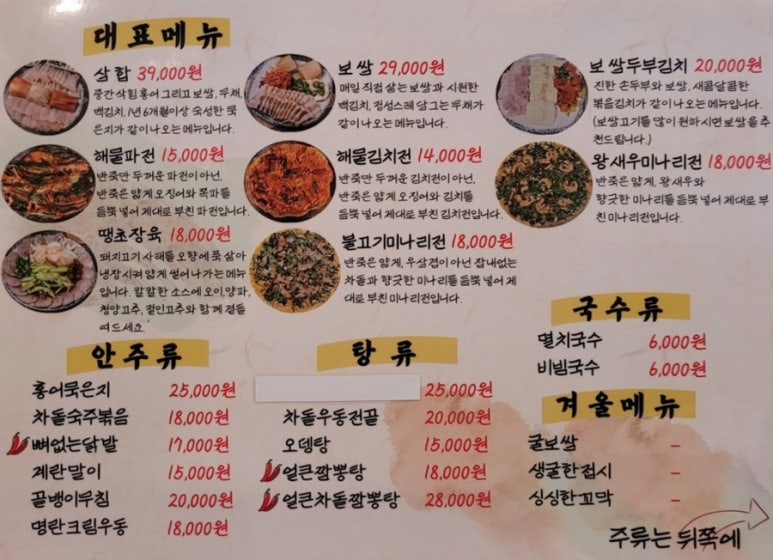 대표메뉴
삼합 39,000원
중간삭힘 홍어 그리고 보쌈, 두채,
백김치, 1년 6개월이상 숙성한 묵
은지가 같이 나오는 메뉴입니다.
보쌈 29,000원
매일 직접 삶는 보쌈과 시원한
백김치, 정성스레 담그는 두채가
같이 나오는 메뉴입니다.
보쌈두부김치 20,000원
진한 손두부와 보쌈, 새콤달콤한
볶음김치가 같이 나오는 메뉴입니다.
(보쌈고기를 많이 원하시면 보쌈을 추
천드립니다.)
해물파전 15,000원
반죽만 두꺼운 파전이 아닌,
반죽은 얇게 오징어와 쪽파를
듬뿍 넣어 제대로 부친 파전입니다.
해물김치전 14,000원
반죽만 두꺼운 김치전이 아닌,
반죽은 얇게 오징어와 김치를
듬뿍 넣어 제대로 부친 김치전입니다.
왕새우미나리전 18,000원
반죽은 얇게, 왕새우와
향긋한 미나리를 듬뿍 넣어 제대로 부
친 미나리전입니다.
땡초장육 18,000원
돼지고기 사태를 오향에 푹 삶아
냉장시켜 얇게 썰어 나가는 메뉴
입니다. 칼칼한 소스에 오이, 양파,
청양고추, 절인고추와 함께 곁들
여드세요
불고기미나리전 18,000원
반죽은 얇게, 우삼겹이 아닌 잡내없는
차돌과 향긋한 미나리를 듬뿍 넣어 제
대로 부친 미나리전입니다.
안주류
홍어묵은지 25,000원
차돌숙주볶음 18,000원
뼈없는닭발 17,000원
계란말이 15,000원
골뱅이무침 20,000원
명란크림우동 18,000원
탕류
25,000원
차돌우동전골 20,000원
오뎅탕 15,000원
얼큰짬뽕탕 18,000원
얼큰차돌짬뽕탕 28,000원
국수류
멸치국수 6,000원
비빔국수 6,000원
겨울메뉴
굴보쌈 -
생굴한접시 -
싱싱한꼬막 -
주류는 뒤쪽에